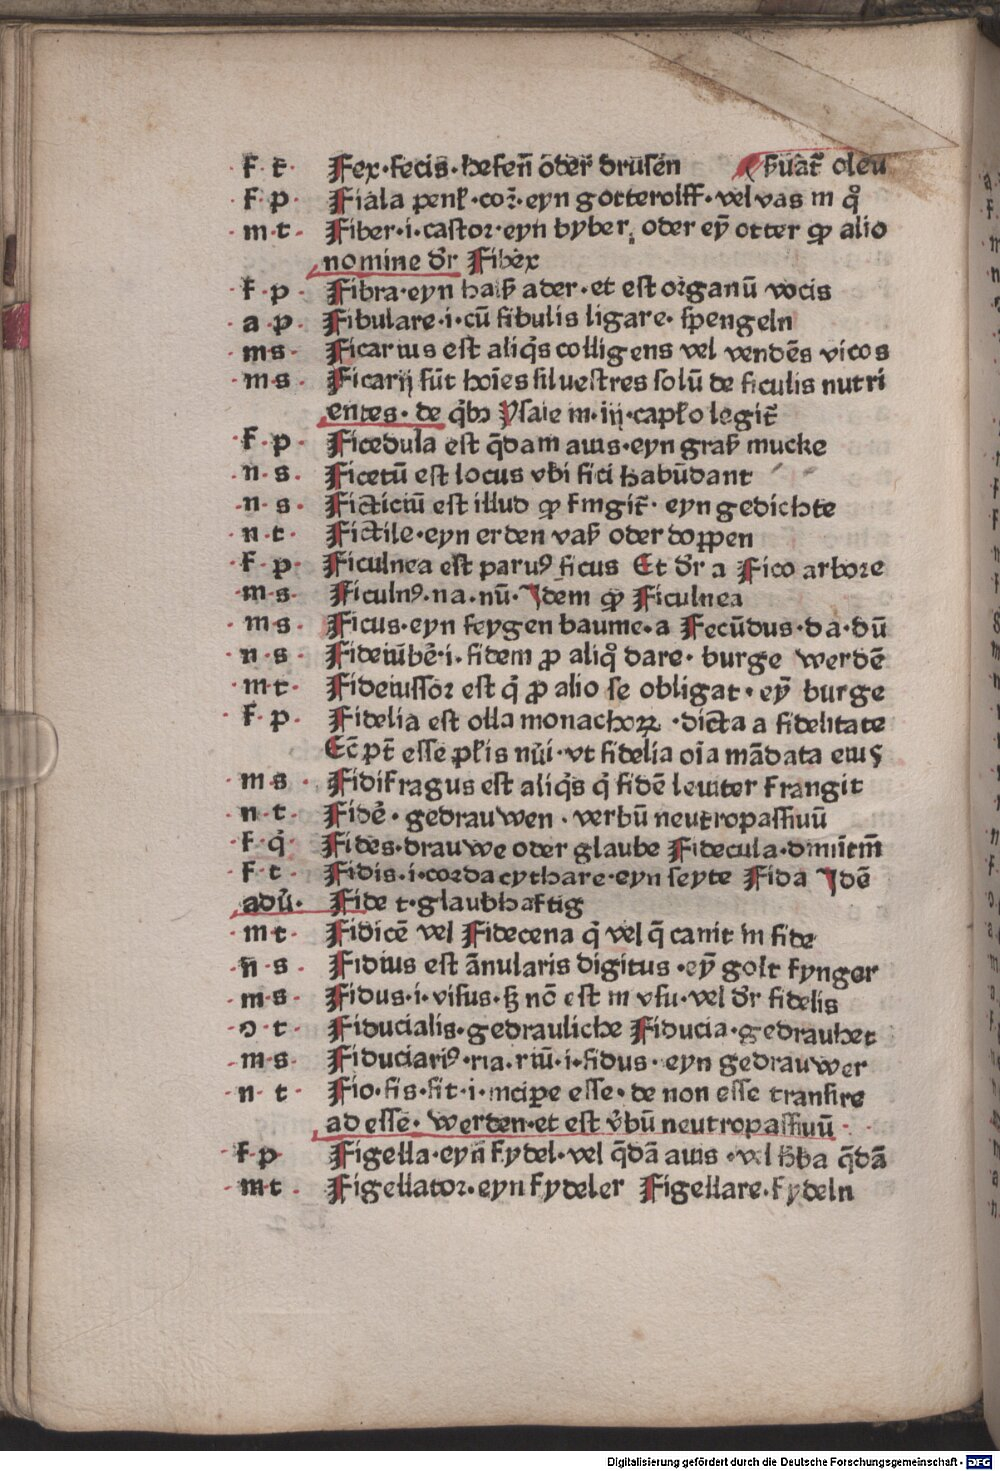 ·f·t· Fex·fecis·hefen̄ oder drusen ẜuāt oleū
·f·p· Fiala penl̵·cor̄·eyn gotterolff·vel vas in qͦ
·m·t· Fiber·i·castor·eyn byber, oder eȳ otter ꝙ alio
nomine dr̄ Fibex
·f·p· Fibra·eyn halß ader·et est organū vocis
·a·p· Fibulare·i·cū fibulis ligare·spengeln
·m·s· Ficarius est aliqͥs colligens vel vendēs vicos
·m·s· Ficarij sūt hoīes siluestres solū de ficulis nutri
entes·de qͥbꝫ Ysaie in·iij·capl̵o legit̄
·f·p· Ficedula est q̄dam auis·eyn graß mucke
·n·s· Ficetū est locus vbi fici habūdant
·n·s· Ficticiū est illud ꝙ fingit̄·eyn gedichte
·n·t· Fictile·eyn erden vaß oder doppen
·f·p· Ficulnea est paruꝰ ficus Et dr̄ a Fico arbore
·m·s· Ficulnꝰ·na·nū·Idem ꝙ Ficulnea
·m·s· Ficus·eyn feygen baume·a Fecūdus·da·dū
·n·s· Fideiubē·i·fidem ꝓ aliqͦ dare·burge werdē
·m·t· Fideiussor est qͥ ꝓ alio se obligat·eȳ burge
·f·p· Fidelia est olla monachoꝝ·dicta a fidelitate
Et̄ pt̄ esse pl̵is nūi·vt fidelia oīa mādata eius
·m·s· Fidifragus est aliqͥs qͥ fidē leuiter frangit
·n·t· Fidē·gedrauwen·verbū neutropassiuū
·f·qͥ· Fides·drauwe oder glaube Fidecula·diminitm̄
·f·t· Fidis·i·corda cythare·eyn seyte Fida Idē
adū· Fide t·glaubhaftig
·m·t· Fidicē vel Fidecena qͥ vel q̄ canit in fide
·n·s· Fidius est ānularis digitus·eȳ golt fynger
·m·s· Fidus·i·visus·ꝫ nō est in vsu·vel dr̄ fidelis
·ɔ·t· Fiducialis·gedrauliche Fiducia·gedrauhet
·m·s· Fiduciariꝰ·ria·riū·i·fidus·eyn gedrauwer
·n·t· Fio·fis·fit·i·incipe esse·de non esse transire
ad esse·werden·et est v̄bū neutropassiuū
·f·p Figella·eyn fydel·vel q̄dā auis·vel hͣba q̄dā
·m·t· Figellator·eyn fydeler Figellare·fydeln
Digitalisierung gefördert durch die Deutsche Forschungsgemeinschaft · DFG